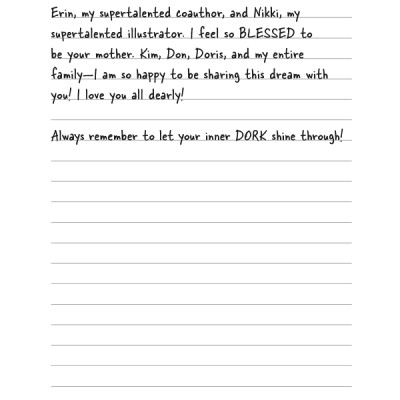 Erin, my supertalented coauthor, and Nikki, my
supertalented illustrator. I feel so BLESSED to
be your mother. Kim, Don, Doris, and my entire
family—I am so happy to be sharing this dream with
you! I love you all dearly!
Always remember to let your inner DORK shine through!